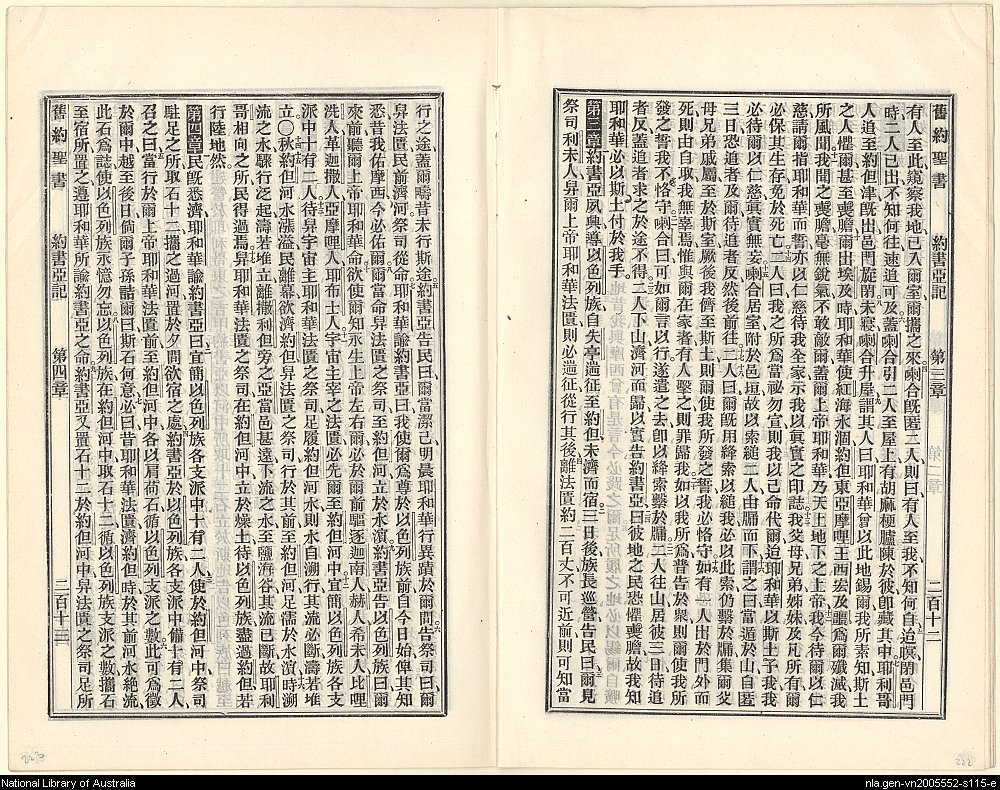 舊約聖書 約書亞記 第三章 二百十二
有人至此窺察我地已入爾室爾攜之來喇合旣匿二人則曰有人至我不知何自迨暝閉邑門
時二人已出不知何往速追可及蓋喇合引二人至屋上有胡麻梗臚陳於彼卽藏其中耶利哥
人追至約但津旣出邑門旋閉未寢喇合升屋謂其人曰耶和華曾以此地錫爾我所素知斯土
之人懼爾甚至喪膽爾出埃及時耶和華使紅海水涸約但東亞摩哩王西宏及噩爲爾殲滅我
所風聞我聞之喪膽毫無銳氣不敢敵爾蓋爾上帝耶和華乃天上地下之主帝我今待爾以仁
慈請爾指耶和華而誓亦以仁慈待我全家示我以眞實之印誌我父母兄弟姊妹及凡所有爾
必保其生存免於死亡二人曰我之所爲當祕勿宣則我以己命代爾迨耶和華以斯土予我我
必待爾以仁慈眞實無妄喇合居室附於邑垣故以索縋二人由牖而下謂之曰當遁於山自匿
三日恐追者及爾待追者反然後前往二人曰爾旣用絳索以縋我必以此索仍繫於牖集爾父
母兄弟戚屬至於斯室厥後我儕至斯土則爾使我所發之誓我必恪守如有人出於門外而
死則由自取我無辜焉惟與爾在家者有人擊之則罪歸我如以我所爲普告於衆則爾使我所
發之誓我不恪守喇合曰可如爾言以行遂遣之去卽以絳索繫於牖二人往山居彼三日待追
者反蓋追者求之於途不得二人下山濟河而歸以實告約書亞曰彼地之民恐懼喪膽故我知
耶和華必以斯土付於我手
第三章約書亞夙興導以色列族自失亭遄征至約但未濟而宿三日後族長巡營告民曰爾見
祭司利未人舁爾上帝耶和華法匱則必遄征從行其後離法匱約二百丈不可近前則可知當
行之途蓋爾疇昔未行斯途約書亞告民曰爾當潔己明晨耶和華行異蹟於爾間告祭司曰爾
舁法匱民前濟河祭司從命耶和華諭約書亞曰我使爾爲尊於以色列族前自今日始俾其知
悉昔我佑摩西今必佑爾爾當命舁法匱之祭司至約但河立於水濱約書亞告以色列族曰爾
來前聽爾上帝耶和華命欲使爾知永生上帝左右爾必於爾前驅逐迦南人赫人希未人比哩
洗人革迦撒人亞摩哩人耶布士人宇宙主宰之法匱必先爾至約但河中宜簡以色列族各支
派中十有二人待舁宇宙主耶和華法匱之祭司足履約但河水則水自溯行其流必斷濤若堆
立〇秋約但河水漲溢民離幕欲濟約但舁法匱之祭司行於其前至約但河足濡於水濱時溯
流之水驟行泛起濤若堆立離撒利但旁之亞當邑甚遠下流之水至鹽海谷其流已斷故耶利
哥相向之所民得過焉舁耶和華法匱之祭司在約但河中立於燥土待以色列族盡過約但若
行陸地然
第四章民旣悉濟耶和華諭約書亞曰宜簡以色列族各支派中十有二人使於約但河中祭司
駐足之所取石十二攜之過河置於夕間欲宿之處約書亞於以色列族各支派中備十有二人
召之曰當行於爾上帝耶和華法匱前至約但河中各以肩荷石循以色列支派之數此可爲徵
於爾中越至後日倘爾子孫諮爾曰斯石何意必曰昔耶和華法匱濟約但時於其前河水絕流
此石爲誌使以色列族永憶勿忘以色列族在約但河中取石十二循以色列族支派之數攜石
至宿所置之遵耶和華所諭約書亞之命約書亞又置石十二於約但河中舁法匱之祭司足所
舊約聖書 約書亞記 第四章 二百十三
National Library of Australia
nla.gen-vn2005552-s115-e